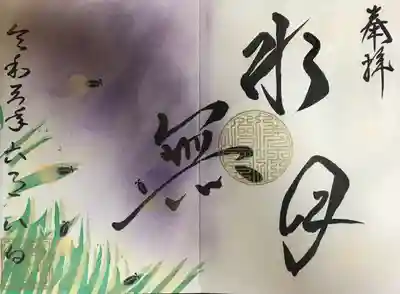 奉拝
水月
無
令和 年六月 日